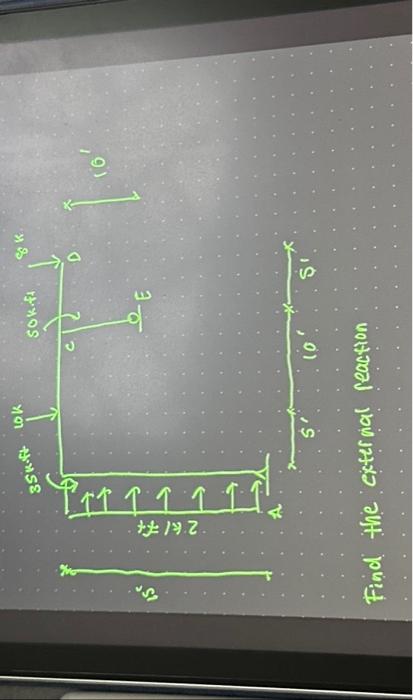 35k.ft 10k 50k.ft 8k
C D
10'
E
2 k/ft
15'
A
5' 10' 5'
Find the external reaction